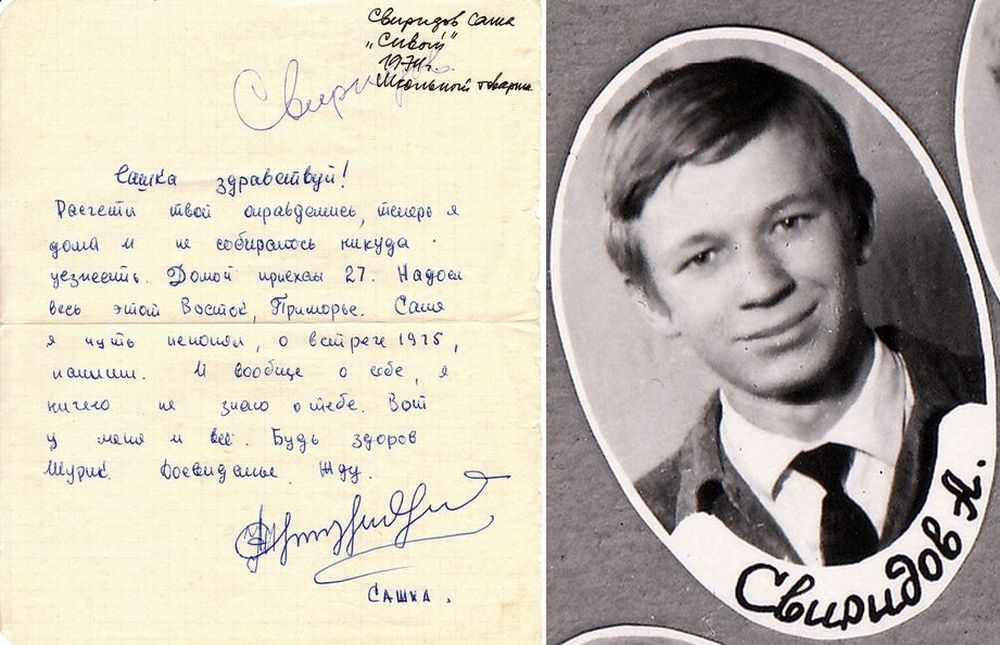 Свиридов Саша
"Сивый"
1974г.
Школьный товарищ
Свиридов
Сашка здравствуй!
Расчеты твои оправдались, теперь я
дома и не собираюсь никуда
уезжать. Домой приехал 27. Надоел
весь этот Восток, Приморье. Саня
я чуть непонял, о встрече 1975,
напиши. И вообще о себе, я
ничего не знаю о тебе. Вот
у меня и всё. Будь здоров
Шурик. Досвиданье Жду.
САШКА.
Свиридов А.